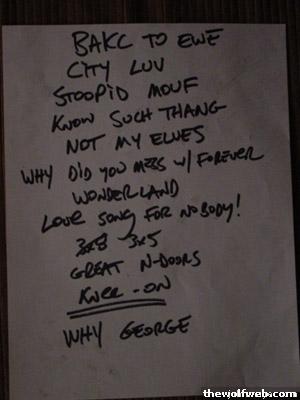 BAKC TO EWE
CITY LUV
STOOPID MOUF
KNOW SUCH THANG
NOT MY ELVES
WHY DID YOU MESS W/ FOREVER
WONDERLAND
LOVE SONG FOR NOBODY!
3x5
GREAT N-DOORS
KNEE-ON
WHY GEORGE
thewolfweb.com